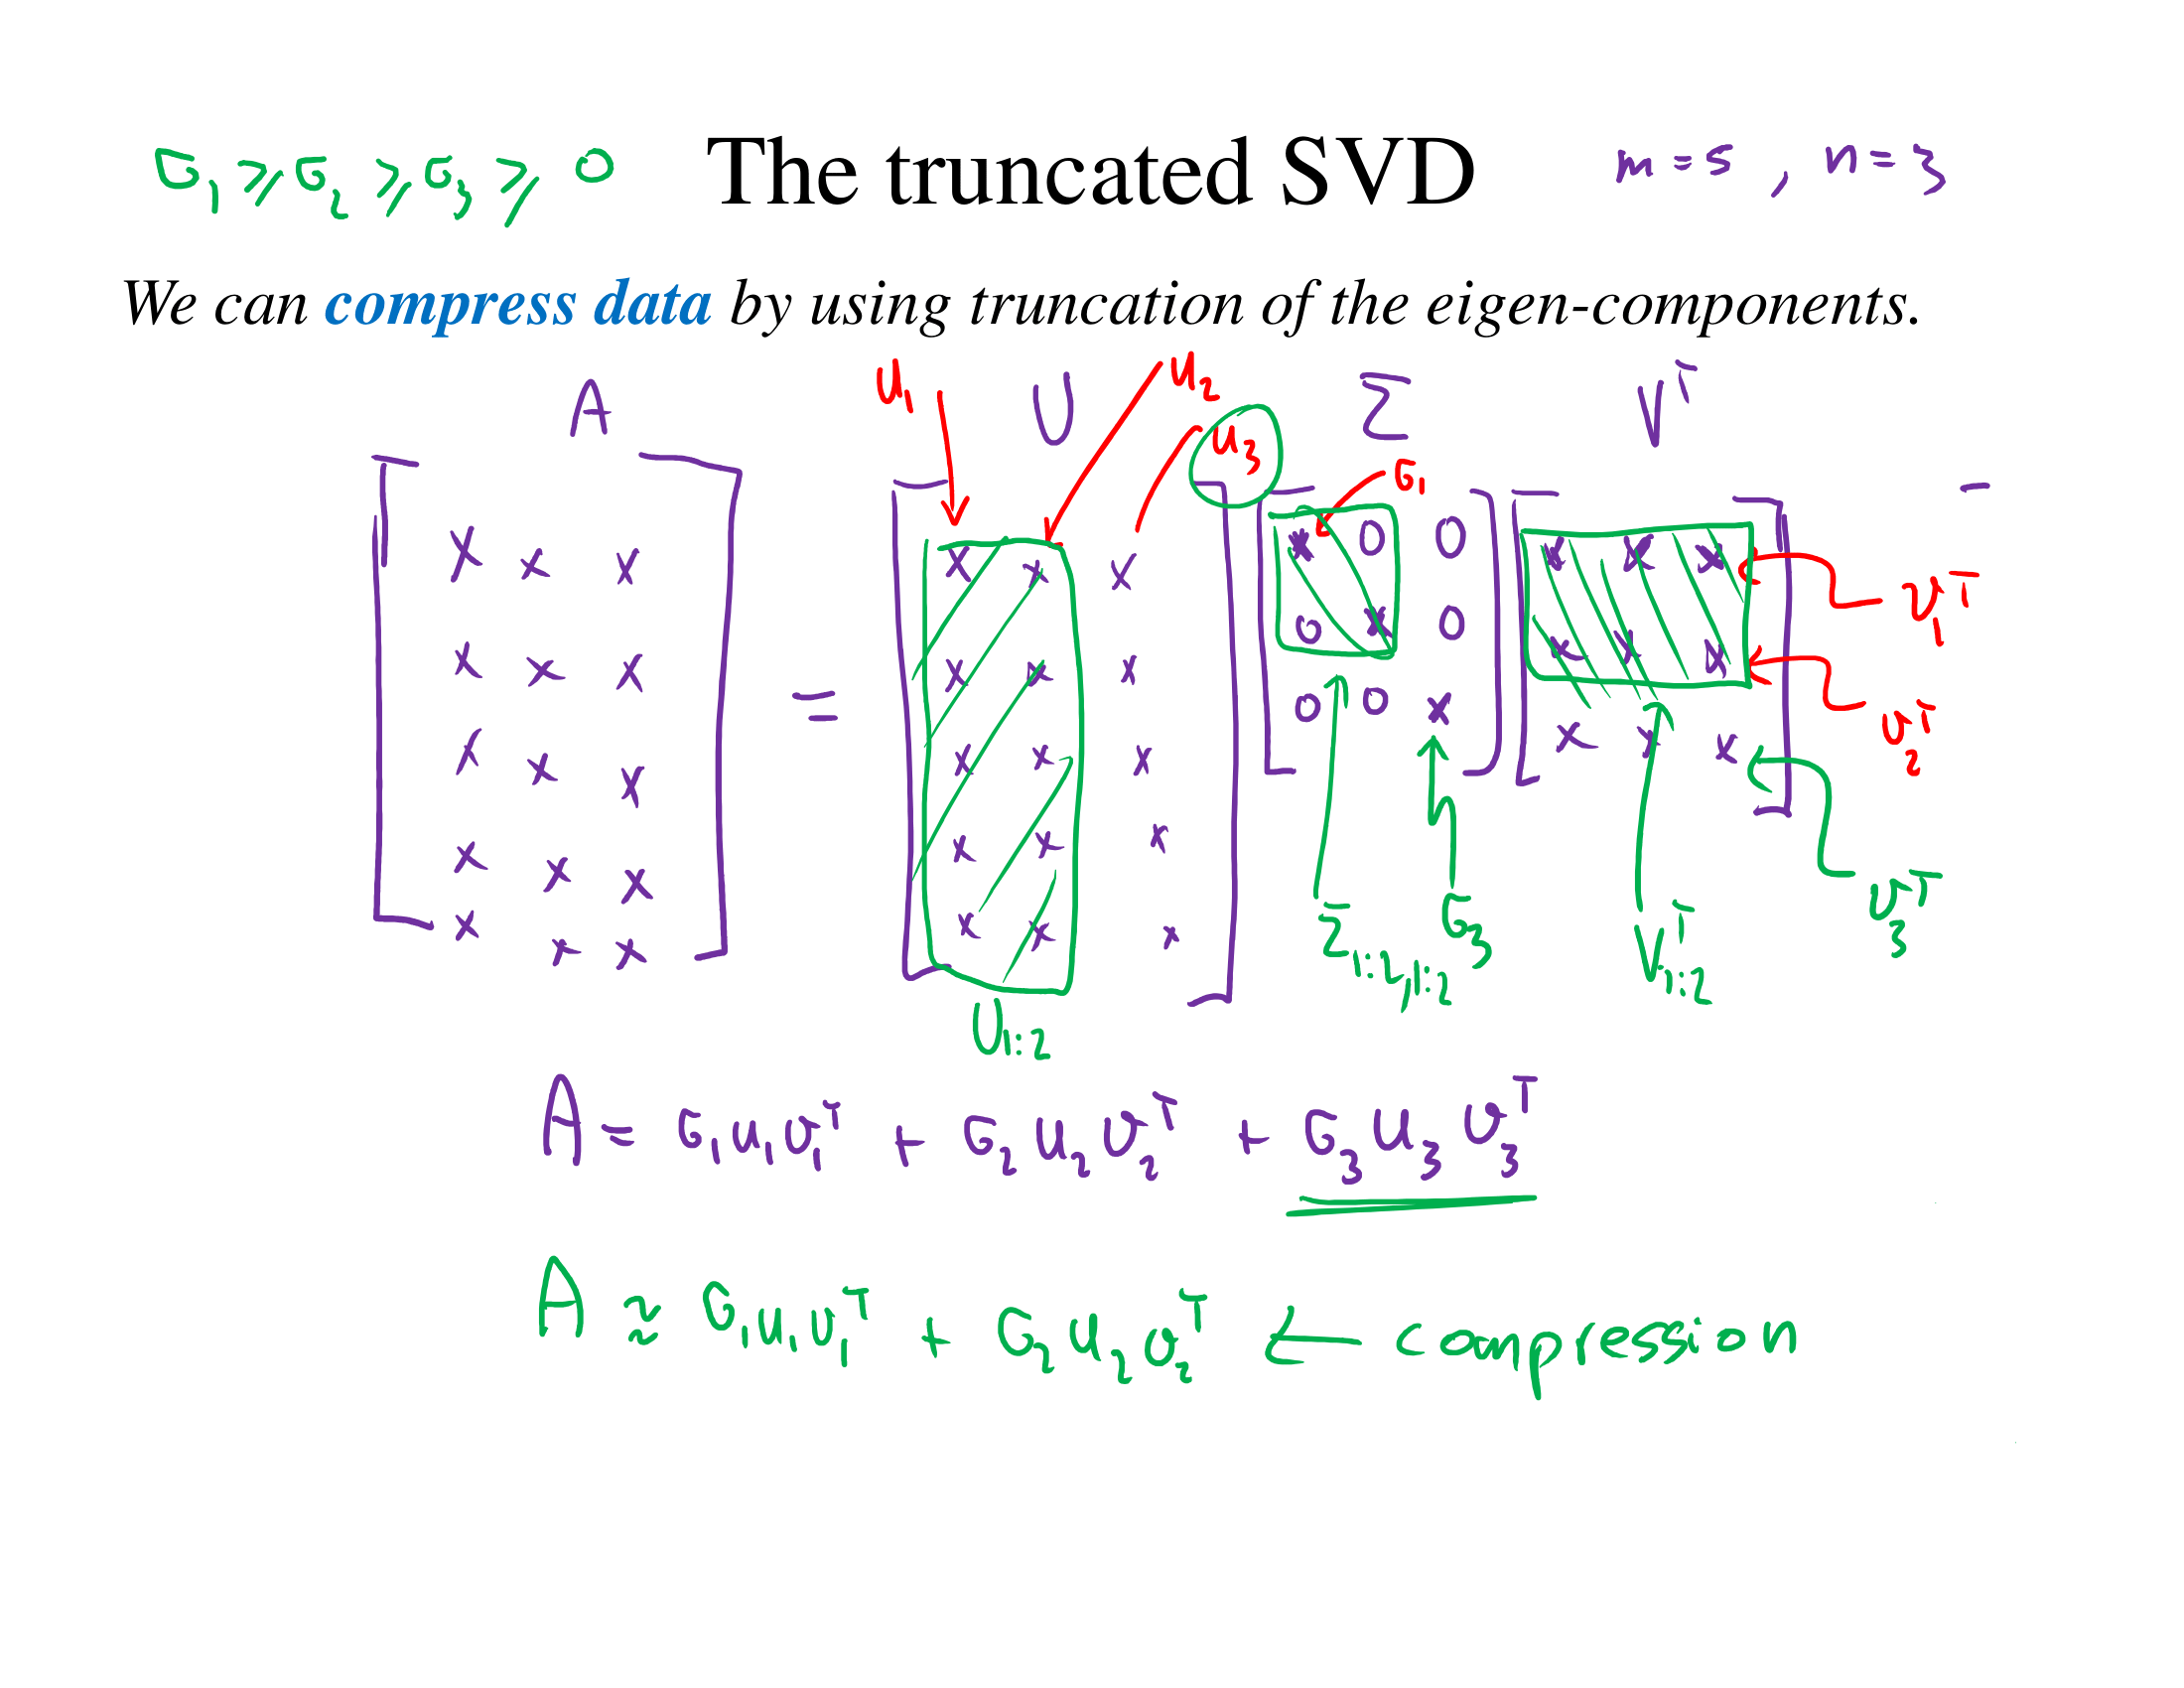 σ₁ ⩾ σ₂ ⩾ σ₃ ⩾ 0 The truncated SVD m = 5 , n = 3
We can compress data by using truncation of the eigen-components.
A U Σ Vᵀ
u₁ u₂ u₃ σ₁
[ x x x ] = [ x x x ] [ x 0 0 ] [ x x x ] v₁ᵀ
x x x x x x 0 x 0 x x x v₂ᵀ
x x x x x x 0 0 x x x x v₃ᵀ
x x x x x x
x x x x x x
U₁:₂ Σ₁:₂,₁:₂ σ₃ Vᵀ₁:₂
A = σ₁u₁v₁ᵀ + σ₂u₂v₂ᵀ + σ₃u₃v₃ᵀ
A ≈ σ₁u₁v₁ᵀ + σ₂u₂v₂ᵀ ← compression